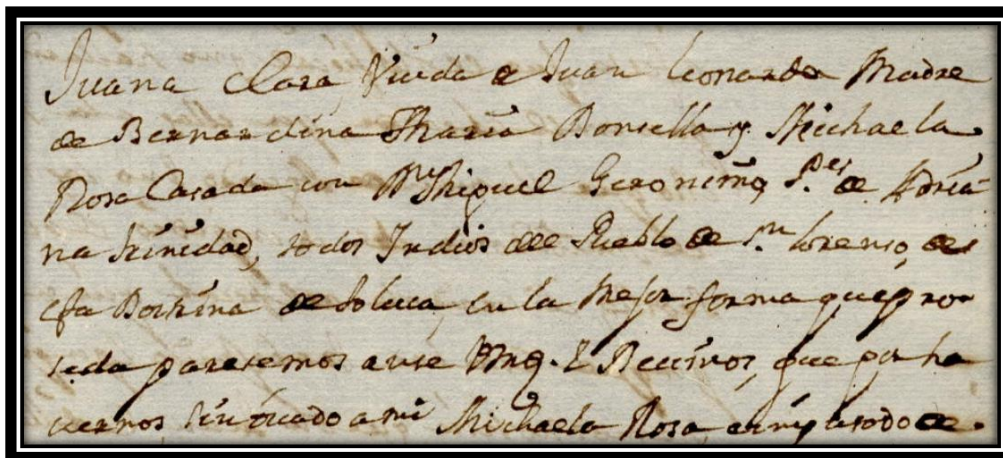 Juana Clara, Viuda de Juan Leonardo Madre
de Bernardina Maria Donsella y Michaela
Rosa Casada con Miguel Geronimo, P.es de Adria-
na trinidad, todos Indios del Pueblo de S.n Lorenso, de
esta Doctrina de toluca, en la Mejor forma que pro-
seda paresemos ante Vmd. y Decimos, que por ha
vernos a mi Michaela Rosa,